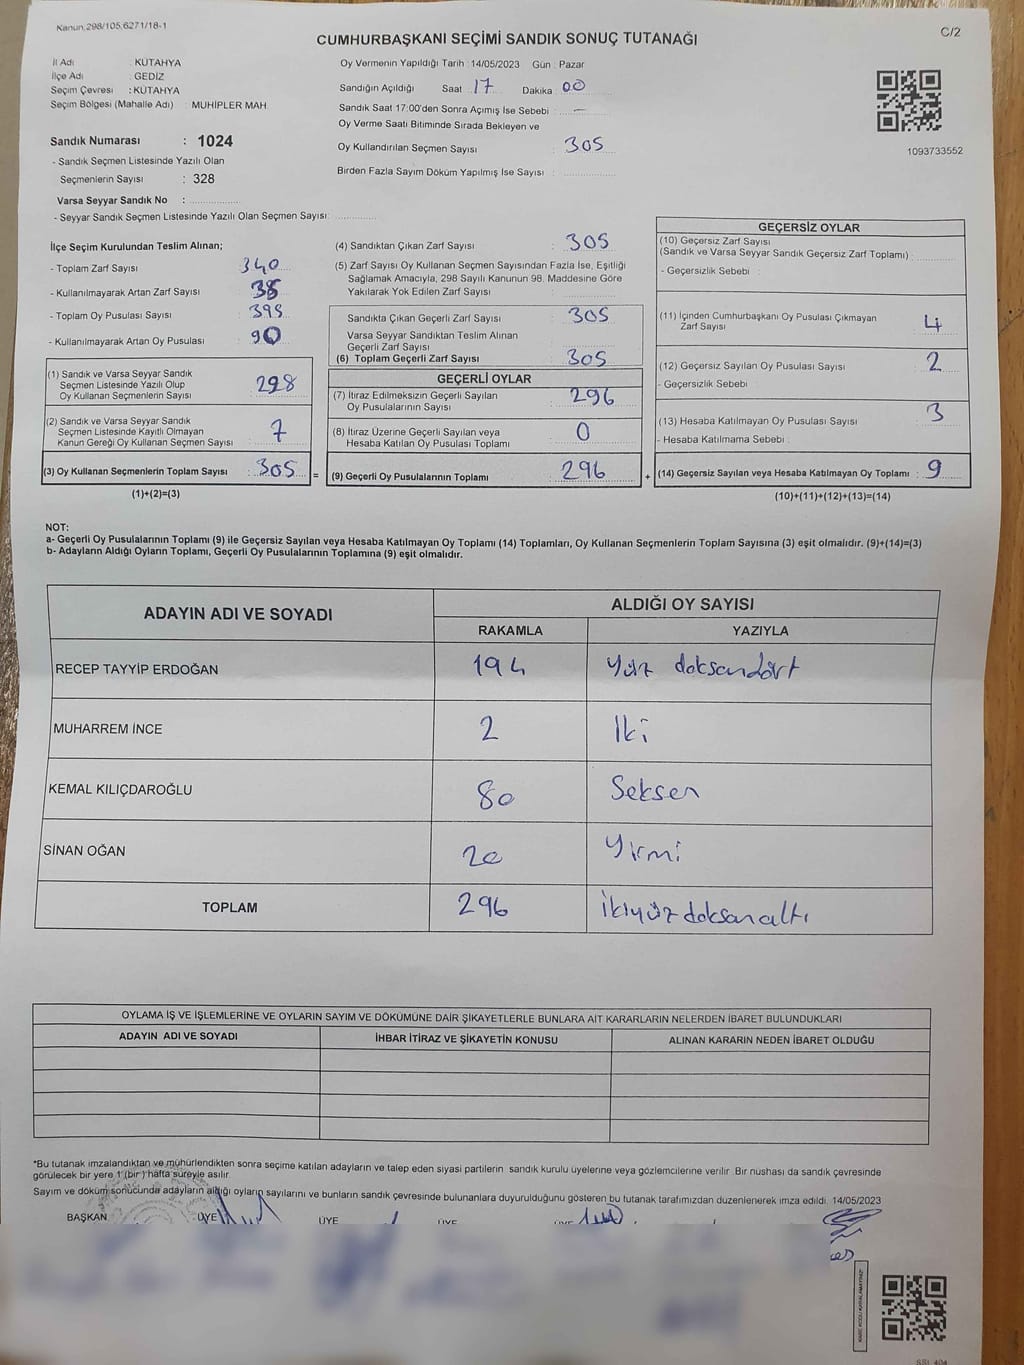 Kanun 298/105,6271/18-1
C/2
CUMHURBAŞKANI SEÇİMİ SANDIK SONUÇ TUTANAĞI
İl Adı : KÜTAHYA
İlçe Adı : GEDİZ
Seçim Çevresi : KÜTAHYA
Seçim Bölgesi (Mahalle Adı) : MUHİPLER MAH
Sandık Numarası : 1024
- Sandık Seçmen Listesinde Yazılı Olan
Seçmenlerin Sayısı : 328
Varsa Seyyar Sandık No :
- Seyyar Sandık Seçmen Listesinde Yazılı Olan Seçmen Sayısı:
Oy Vermenin Yapıldığı Tarih : 14/05/2023 Gün : Pazar
Sandığın Açıldığı Saat : 17 Dakika : 00
Sandık Saat 17:00'den Sonra Açımış İse Sebebi : —
Oy Verme Saati Bitiminde Sırada Bekleyen ve
Oy Kullandırılan Seçmen Sayısı : 305
Birden Fazla Sayım Döküm Yapılmış İse Sayısı :
1093733552
İlçe Seçim Kurulundan Teslim Alınan;
- Toplam Zarf Sayısı : 340
- Kullanılmayarak Artan Zarf Sayısı : 35
- Toplam Oy Pusulası Sayısı : 395
- Kullanılmayarak Artan Oy Pusulası : 90
(1) Sandık ve Varsa Seyyar Sandık
Seçmen Listesinde Yazılı Olup
Oy Kullanan Seçmenlerin Sayısı : 298
(2) Sandık ve Varsa Seyyar Sandık
Seçmen Listesinde Kayıtlı Olmayan
Kanun Gereği Oy Kullanan Seçmen Sayısı : 7
(3) Oy Kullanan Seçmenlerin Toplam Sayısı : 305 =
(1)+(2)=(3)
(4) Sandıktan Çıkan Zarf Sayısı : 305
(5) Zarf Sayısı Oy Kullanan Seçmen Sayısından Fazla İse, Eşitliği
Sağlamak Amacıyla, 298 Sayılı Kanunun 98. Maddesine Göre
Yakılarak Yok Edilen Zarf Sayısı :
Sandıkta Çıkan Geçerli Zarf Sayısı : 305
Varsa Seyyar Sandıktan Teslim Alınan
Geçerli Zarf Sayısı :
(6) Toplam Geçerli Zarf Sayısı : 305
GEÇERLİ OYLAR
(7) İtiraz Edilmeksizin Geçerli Sayılan
Oy Pusulalarının Sayısı : 296
(8) İtiraz Üzerine Geçerli Sayılan veya
Hesaba Katılan Oy Pusulası Toplamı : 0
(9) Geçerli Oy Pusulalarının Toplamı : 296 +
GEÇERSİZ OYLAR
(10) Geçersiz Zarf Sayısı
(Sandık ve Varsa Seyyar Sandık Geçersiz Zarf Toplamı) :
- Geçersizlik Sebebi :
(11) İçinden Cumhurbaşkanı Oy Pusulası Çıkmayan
Zarf Sayısı : 4
(12) Geçersiz Sayılan Oy Pusulası Sayısı : 2
- Geçersizlik Sebebi
(13) Hesaba Katılmayan Oy Pusulası Sayısı : 3
- Hesaba Katılmama Sebebi :
(14) Geçersiz Sayılan veya Hesaba Katılmayan Oy Toplamı : 9
(10)+(11)+(12)+(13)=(14)
NOT:
a- Geçerli Oy Pusulalarının Toplamı (9) ile Geçersiz Sayılan veya Hesaba Katılmayan Oy Toplamı (14) Toplamları, Oy Kullanan Seçmenlerin Toplam Sayısına (3) eşit olmalıdır. (9)+(14)=(3)
b- Adayların Aldığı Oyların Toplamı, Geçerli Oy Pusulalarının Toplamına (9) eşit olmalıdır.
ADAYIN ADI VE SOYADI
ALDIĞI OY SAYISI
RAKAMLA YAZIYLA
RECEP TAYYİP ERDOĞAN 194 Yüz doksandört
MUHARREM İNCE 2 İki
KEMAL KILIÇDAROĞLU 80 Seksen
SİNAN OĞAN 20 Yirmi
TOPLAM 296 İkiyüzdoksanaltı
OYLAMA İŞ VE İŞLEMLERİNE VE OYLARIN SAYIM VE DÖKÜMÜNE DAİR ŞİKAYETLERLE BUNLARA AİT KARARLARIN NELERDEN İBARET BULUNDUKLARI
ADAYIN ADI VE SOYADI İHBAR İTİRAZ VE ŞİKAYETİN KONUSU ALINAN KARARIN NEDEN İBARET OLDUĞU
*Bu tutanak imzalandıktan ve mühürlendikten sonra seçime katılan adayların ve talep eden siyasi partilerin sandık kurulu üyelerine veya gözlemcilerine verilir. Bir nüshası da sandık çevresinde
görülecek bir yere 1 (bir) hafta süreyle asılır.
Sayım ve döküm sonucunda adayların aldığı oyların sayılarını ve bunların sandık çevresinde bulunanlara duyurulduğunu gösteren bu tutanak tarafımızdan düzenlenerek imza edildi. 14/05/2023
BAŞKAN ÜYE ÜYE ÜYE ÜYE